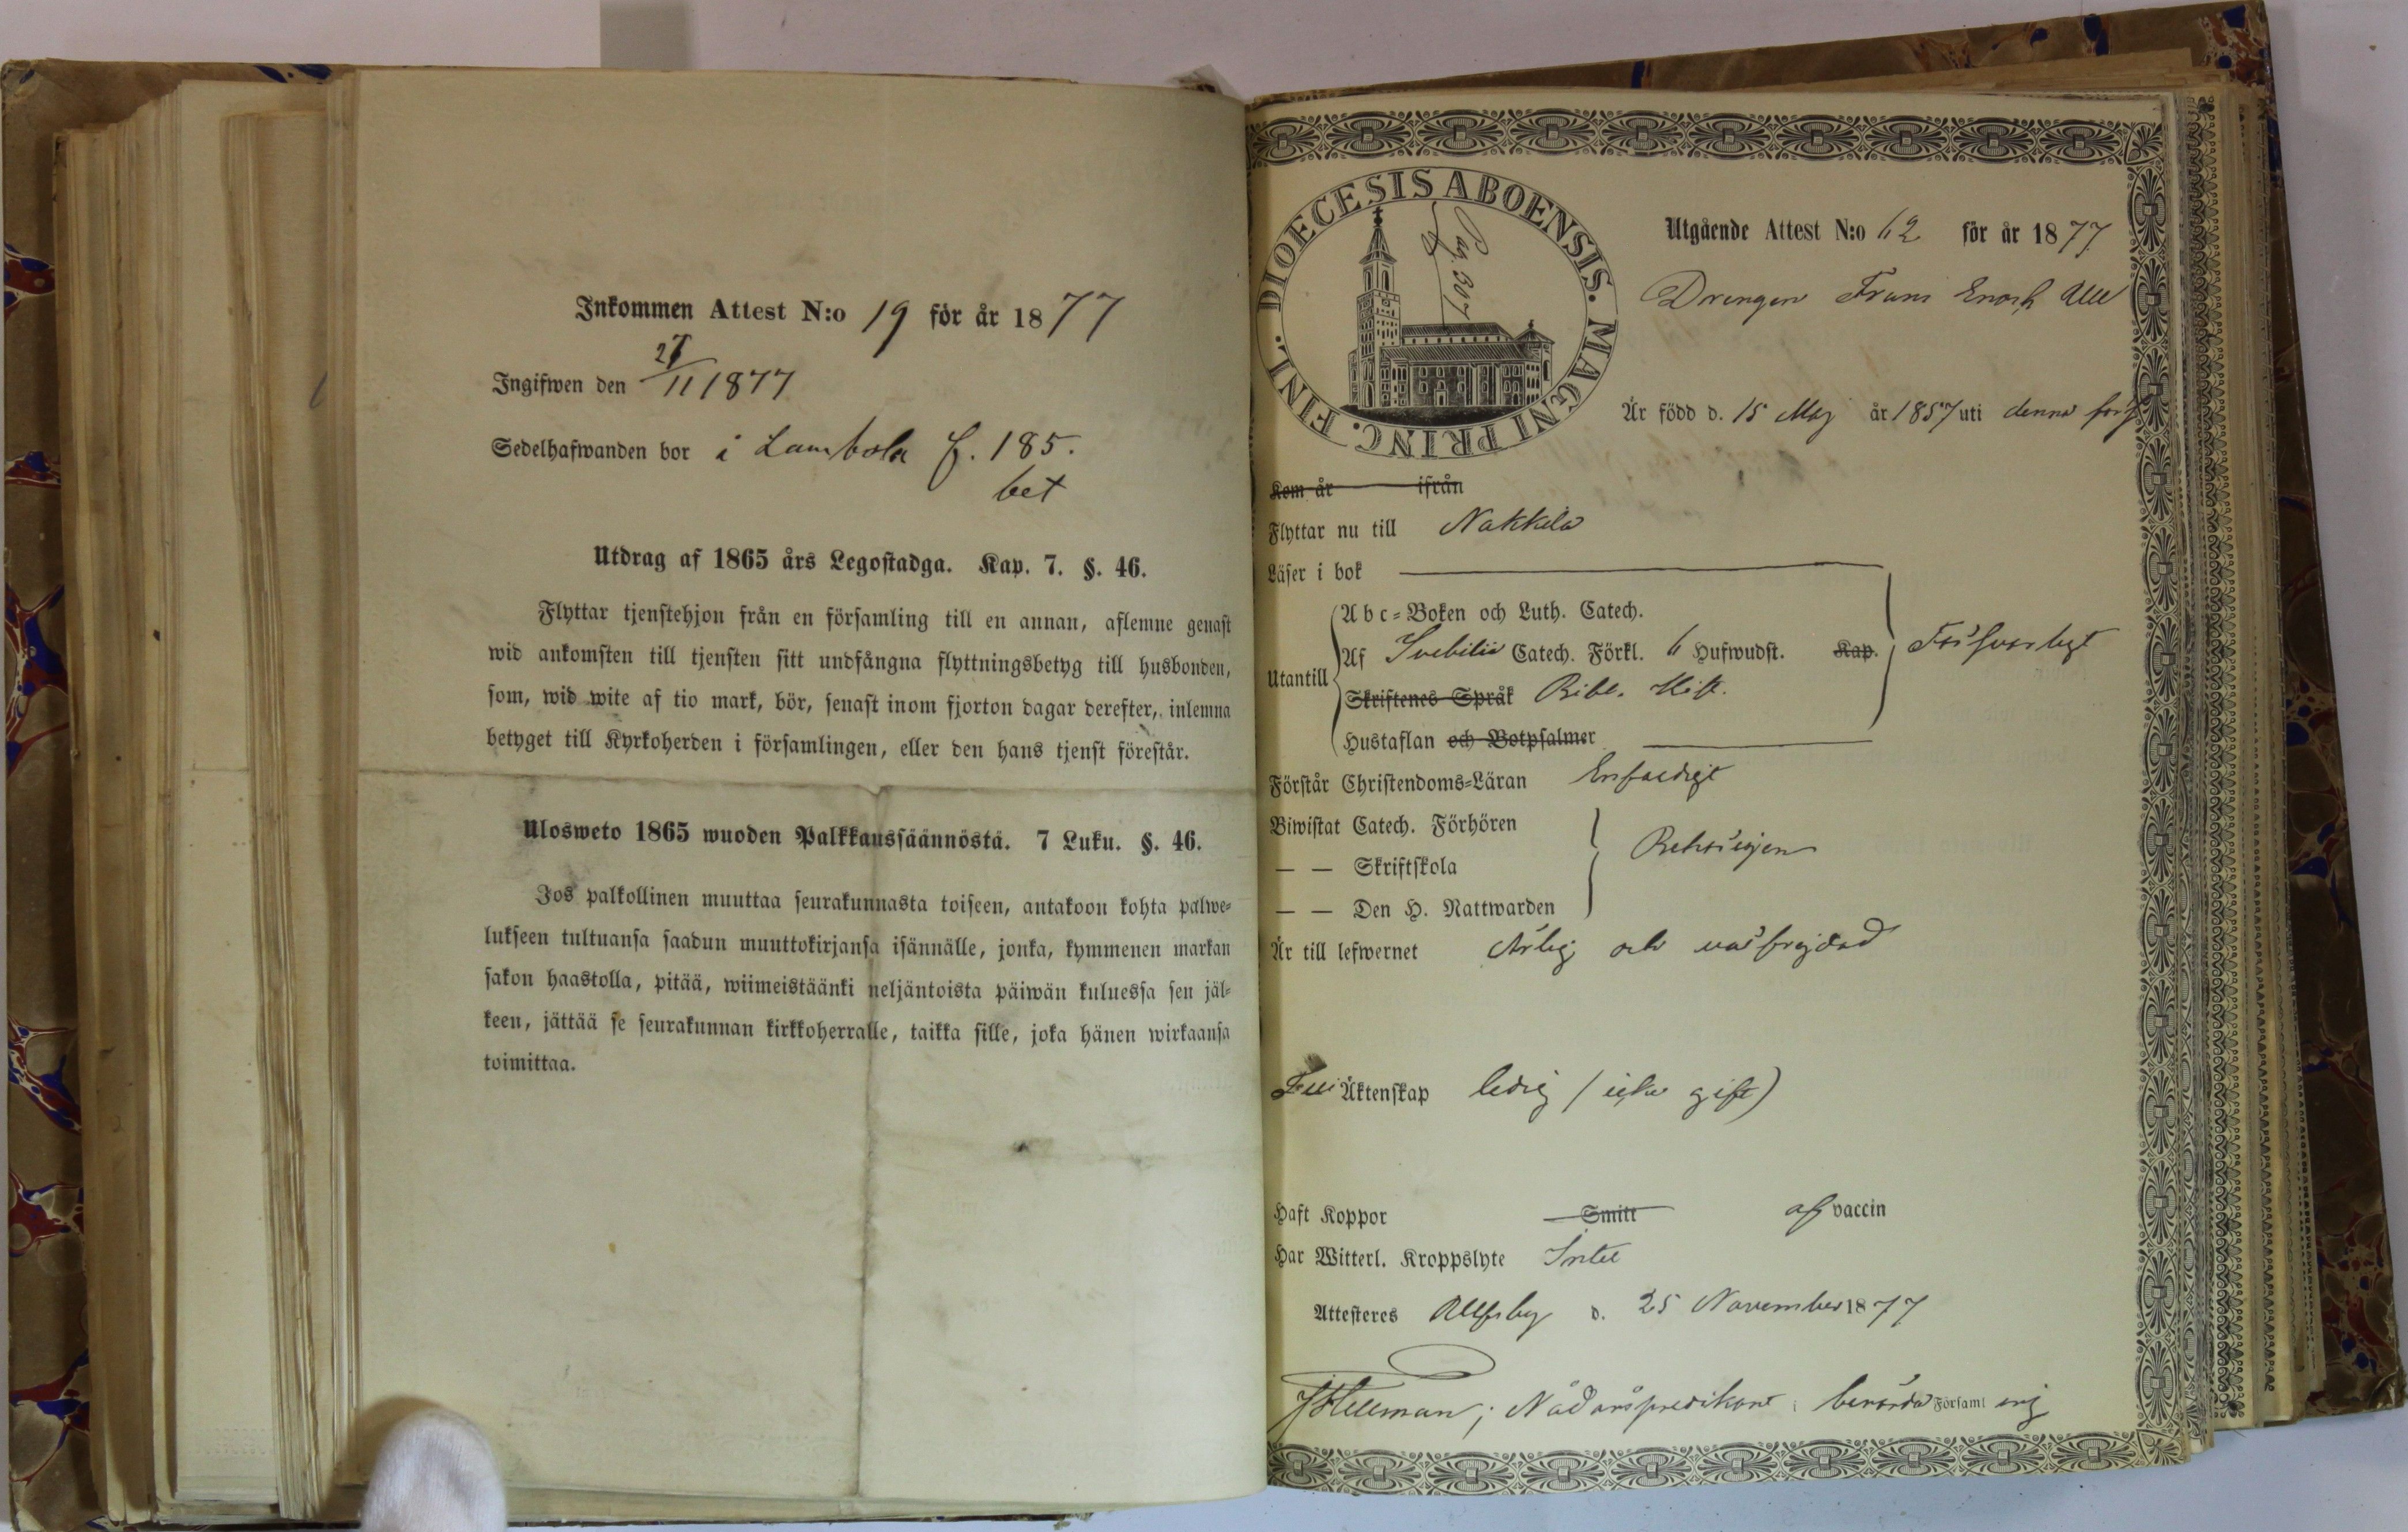 Inkommen Attest N:o 19 för år 1877
Ingifwen den 27/11 1877
Sedelhafwanden bor i Lambola f. 185.
bet
Utdrag af 1865 års Legostadga. Kap. 7. §. 46.
Flyttar tjenstehjon från en församling till en annan, aflemne genast
wid ankomsten till tjensten sitt undfångna flyttningsbetyg till husbonden,
som, wid wite af tio mark, bör, senast inom fjorton dagar derefter, inlemna
betyget till Kyrkoherden i församlingen, eller den hans tjenst förestår.
Ulosweto 1865 wuoden Palkkaussäännöstä. 7 Luku. §. 46.
Jos palkollinen muuttaa seurakunnasta toiseen, antakoon kohta palwe-
lukseen tultuansa saadun muuttokirjansa isännälle, jonka, kymmenen markan
sakon haastolla, pitää, wiimeistäänki neljäntoista päiwän kuluessa sen jäl-
keen, jättää se seurakunnan kirkkoherralle, taikka sille, joka hänen wirkaansa
toimittaa.
DIOECESIS ABOENSIS. MAGNI PRINC. FINL.
Pag. 307
Utgående Attest N:o 62 för år 1877
Drengen Frans Enoch
Är född d. 15 Maj år 1857 uti denna förs
Kom år ifrån
Flyttar nu till Nakkila
Läser i bok
Utantill
Abc-Boken och Luth. Catech.
Af Svebilii Catech. Förkl. 6 Hufwudst. Kap.
Försvarligt
Skriftenes Språk Bibl. Hist.
Hustaflan och Botpsalmer
Förstår Christendoms-Läran Enfaldigt
Biwistat Catech. Förhören
— — Skriftskola
Behörigen
— — Den H. Nattwarden
Är till lefwernet Ärlig och välfrejdad
Till Äktenskap ledig (icke gift)
Haft Koppor Smitt af vaccin
Har Witterl. Kroppslyte Intet
Attesteres Ulfsby d. 25 November 1877
Hellman, Nådårspredikant i berörda Församl ing